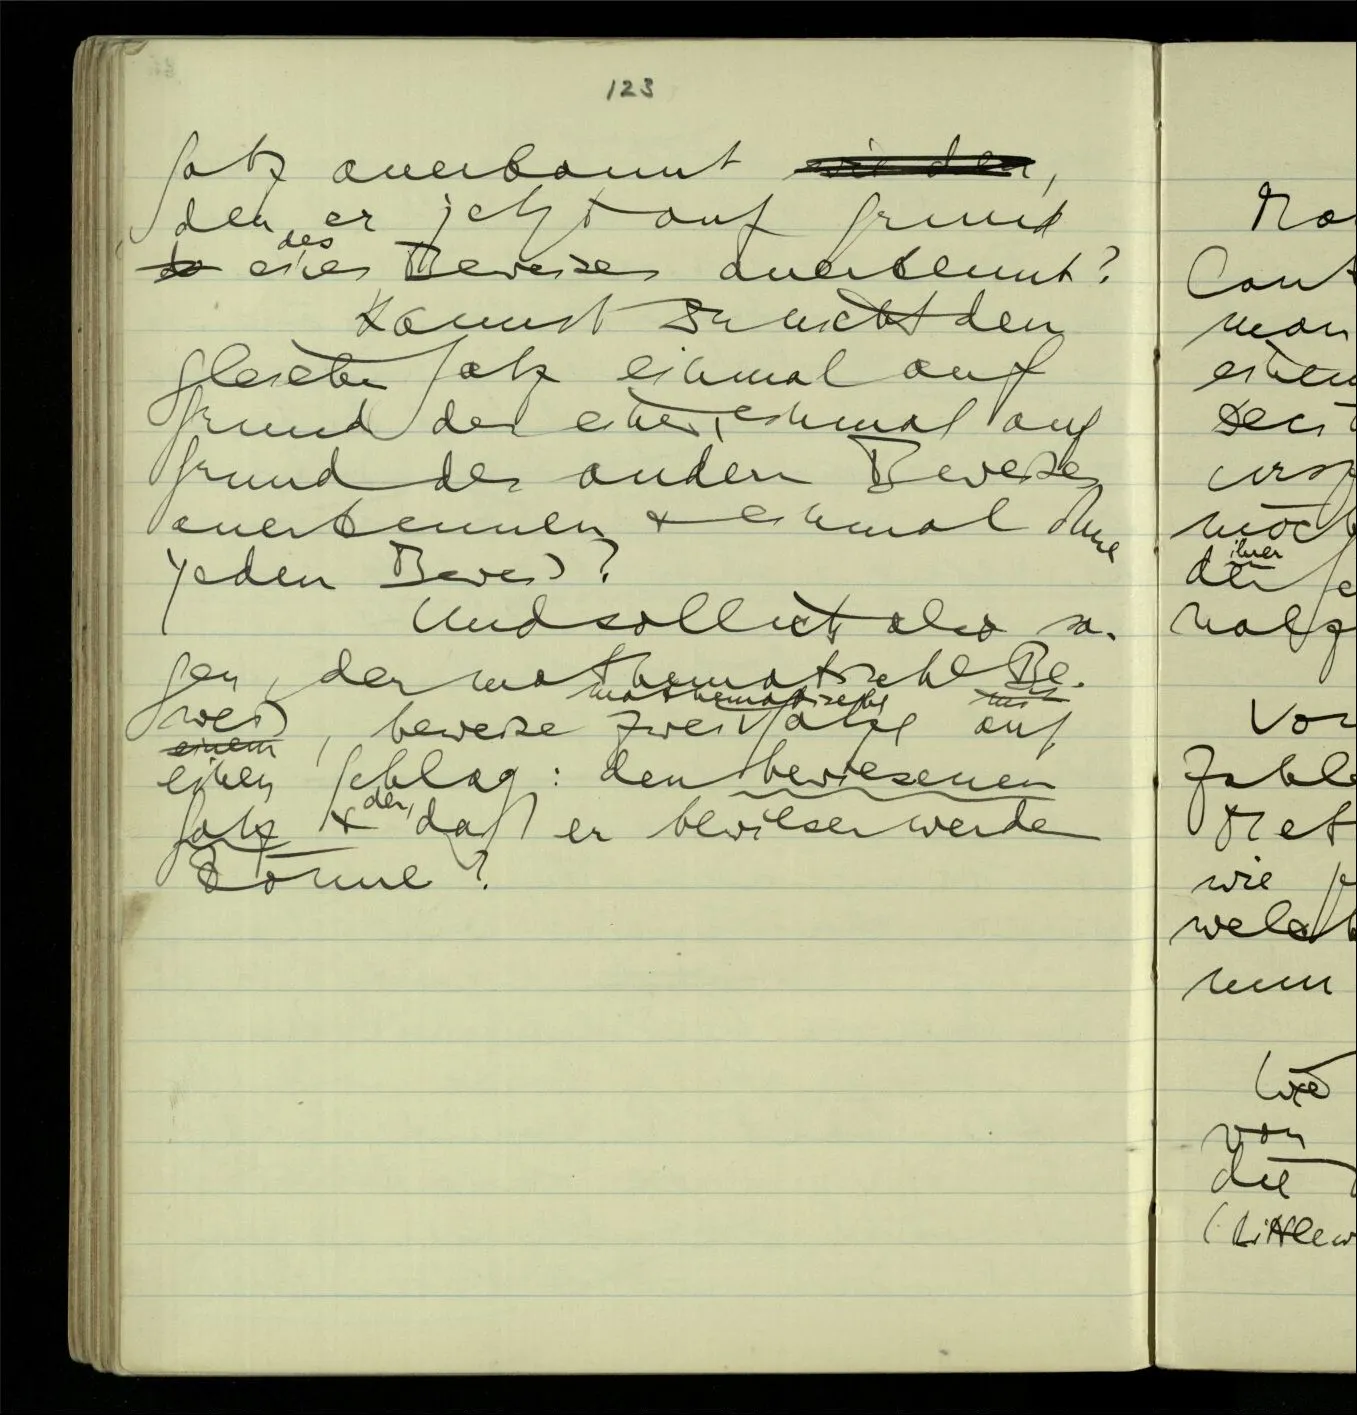 123
Satz anerkannt wie den,
den er jetzt auf Grund
des
de eines Beweises anerkennt?
Kannst Du nicht den
gleichen Satz einmal auf
Grund des einen, einmal auf
Grund des andern Beweises
anerkennen & einmal ohne
jeden Beweis?
Und soll ich also sa-
gen, der mathematische Be-
mathematische mit
weis, beweise zwei Sätze auf
einem
einen Schlag: den bewiesenen
der,
Satz & daß er bewiesen werden
könne?
Can
man
einem
möch
ihrer
der
Vor
Zahle
Met
wie
welch
nun
Wie
von
die
(Littlew